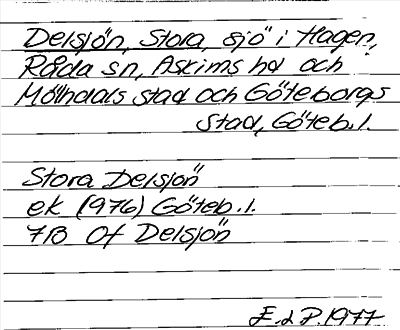 Delsjön, Stora, sjö i Hagen,
Råda sn, Askims hd och
Mölndals stad och Göteborgs
stad, Göteb. l.
Stora Delsjön
ek (1976) Göteb. l.
7B Of Delsjön
1977